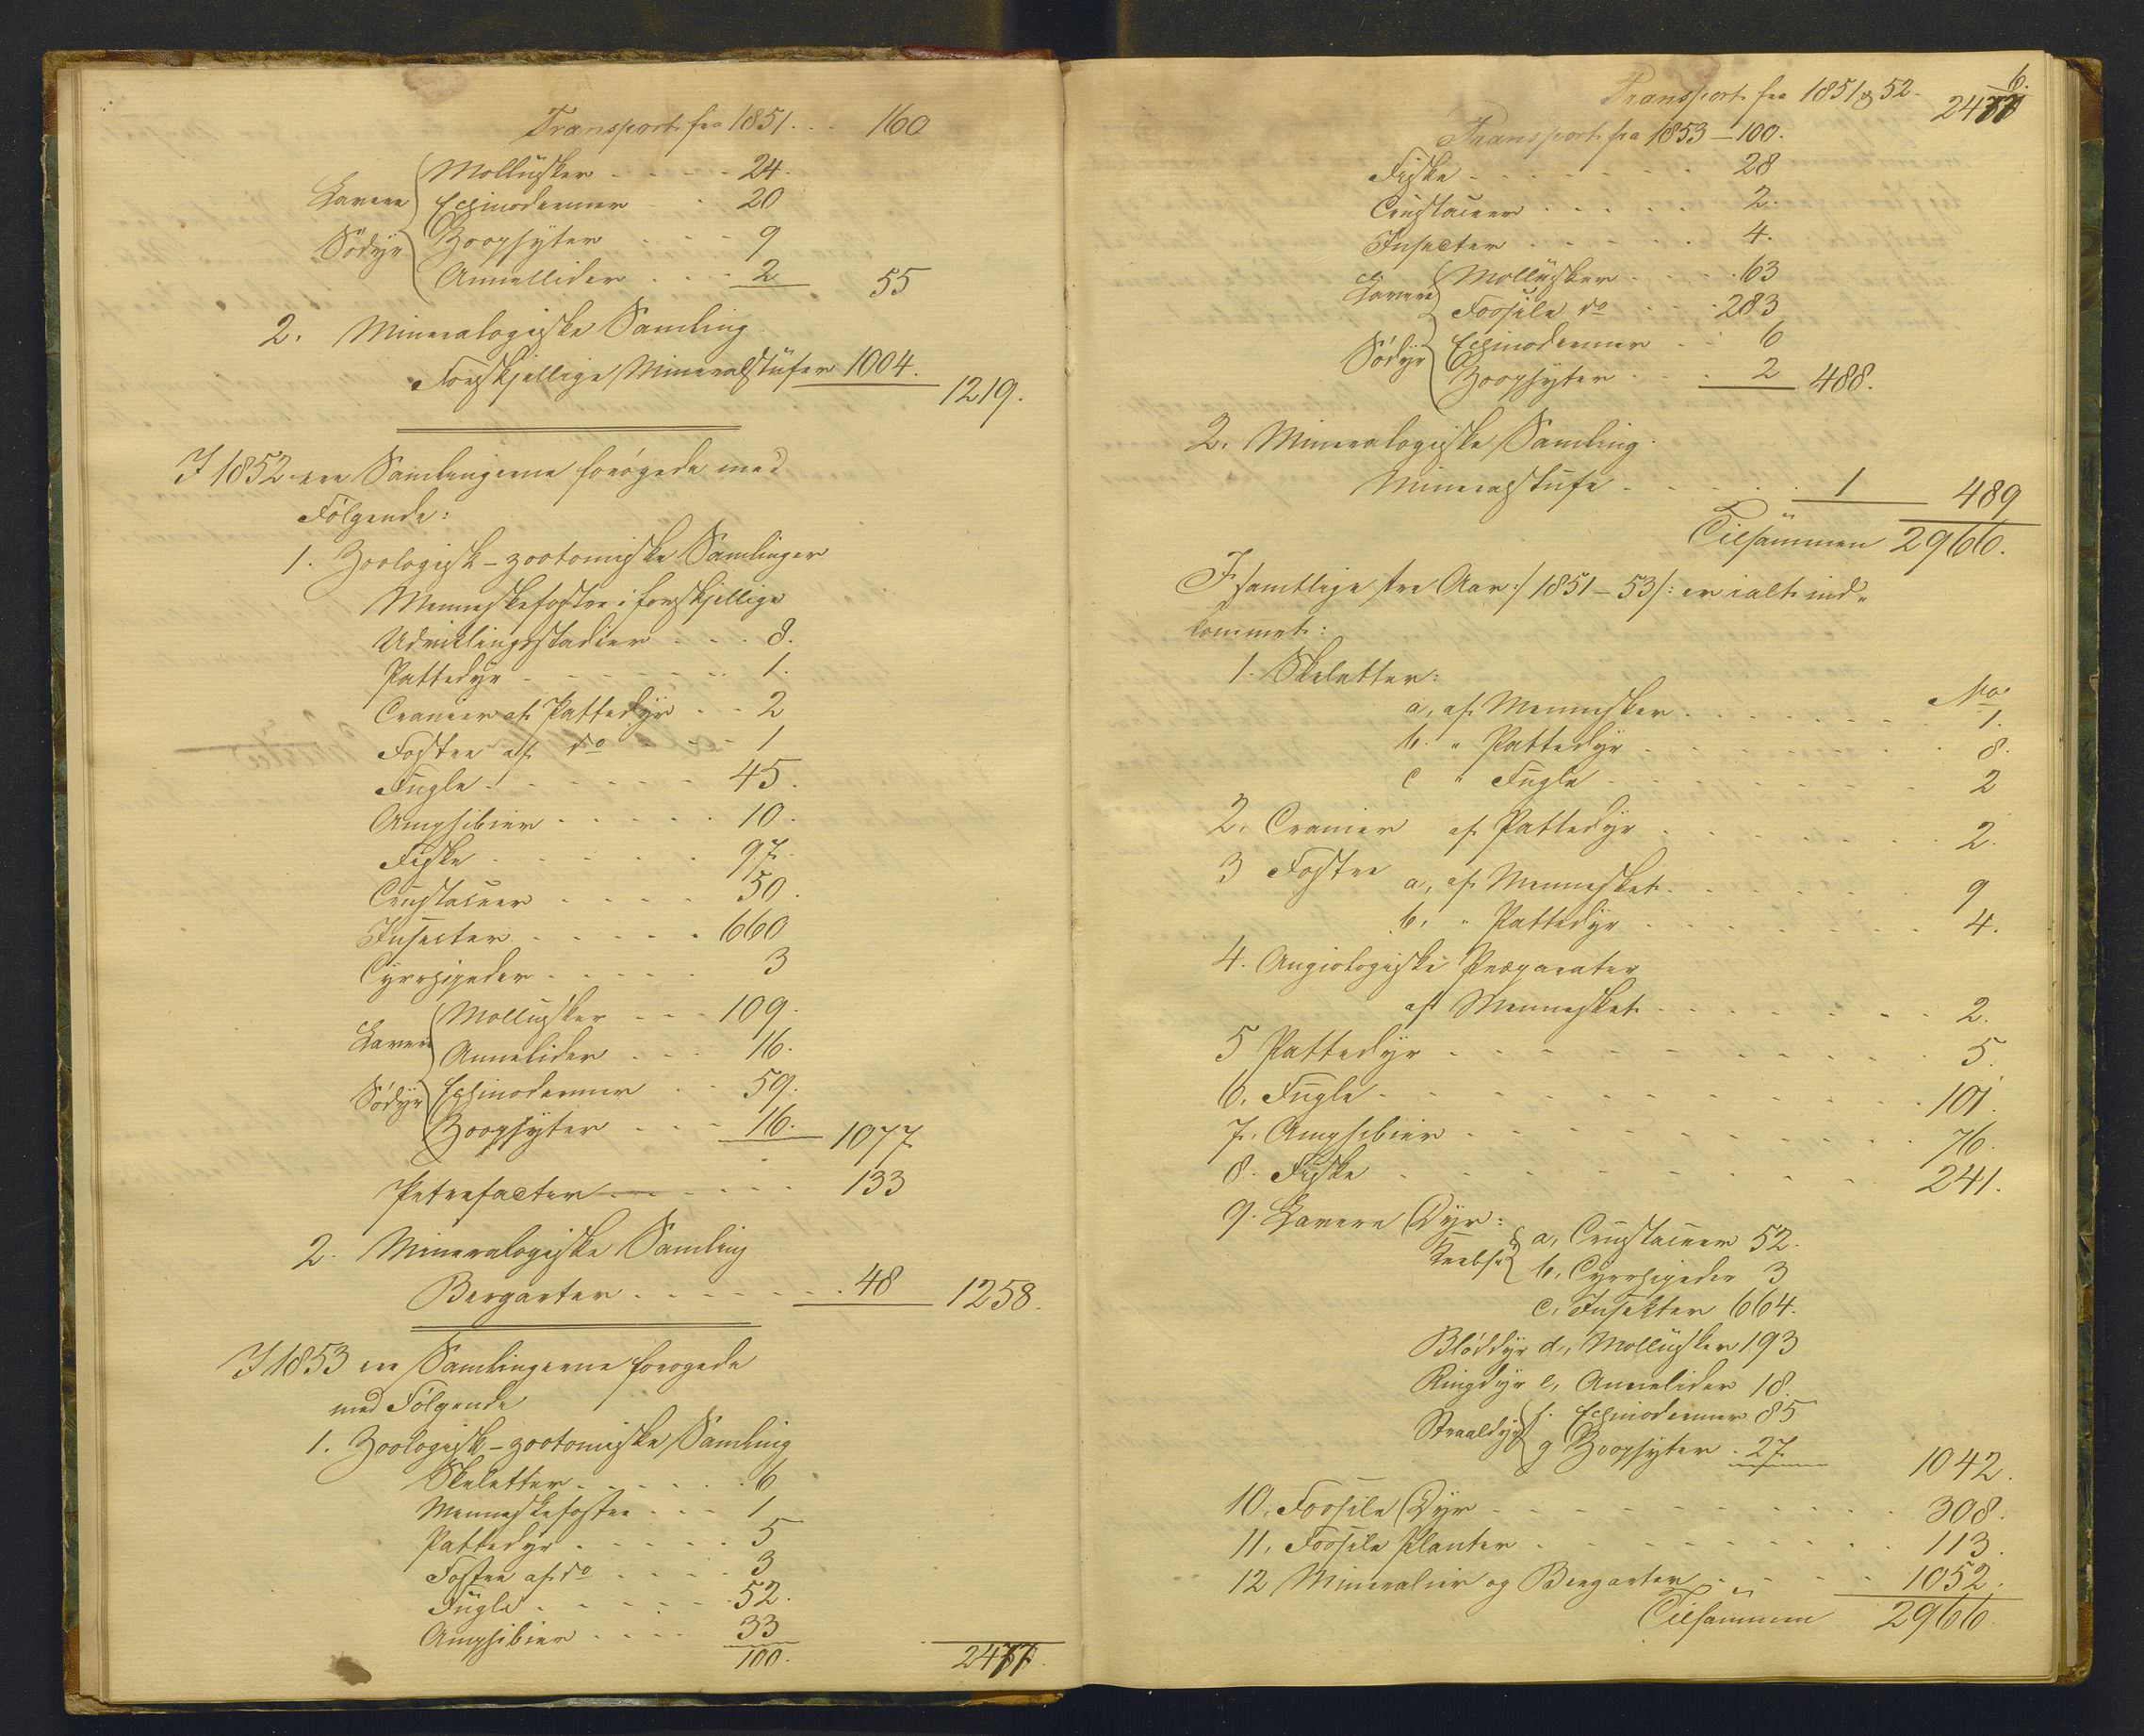 Transport fra 1851 . . . 160
Mollusker - - - - 24.
Lavere Echinodermer - - 20
Södyr Zoophyter . . - - 9
Annellider . . . - 2 55
2. Mineralogiske Samling
Forskjellige Mineralstufer 1004.
1219.
I 1852 ere Samlingerne forögede med
Fölgende:
1. Zoologisk-zootomiske Samlinger
Menneskefostre i forskjellige
Udviklingsstadier . . . 8.
Pattedyr - - - - - - 1.
Cranier af Pattedyr - - - 2
Fostre af do - - - 1
Fugle - - - - - - 45.
Amphibier - - - - - 10.
Fiske - - - - - - 97.
Crustaceer - - - - 50.
Insecter - - - - - 660
Cyrrhipeder - - - - - 3
Mollusker - - - 109.
Lavere Annelider - - - 16.
Södyr Echinodermer - - 59.
Zoophyter - - - 16. 1077
Petrefacter - - - - - 133
2. Mineralogiske Samling
Bergarter - - - - - - 48 1258.
I 1853 ere Samlingerne forogede
med Fölgende
1. Zoologisk-zootomiske Samling
Skeletter - - - - - 6
Menneskefostre - - - 1
Pattedyr - - - - - 5
Fostre af do - - - - 3
Fugle - - - - - - 52.
Amphibier - - - - 33
100. 2477.
6.
Transport fra 1851 & 52. 2477
Transport fra 1853 - 100.
Fiske - - - - - - - 28
Crustaceer - - - - - 2.
Insecter - - - - - - 4.
Lavere Mollusker - - - - 63
Fossile do - - - 283
Södyr Echinodermer - - 6
Zoophyter - - - - 2 488.
2. Mineralogiske Samling.
Mineralstufe - - - - - - 1 489
Tilsammen 2966.
I samtlige tre Aar :/ 1851-53/: er ialt ind„
kommet:
1. Skeletter: No
a, af Mennesker - - - - - - 1.
b. " Pattedyr - - - - - - - 8.
c " Fugle - - - - - - - 2
2. Cranier af Pattedyr - - - - - - - 2.
3 Fostre a, af Mennesket - - - - - - 9
b, " Pattedyr - - - - - - 4.
4. Angiologiske Præparater
af Mennesket - - - - - - - 2.
5 Pattedyr - - - - - - - - - 5.
6. Fugle - - - - - - - - - - 101.
7. Amphibier - - - - - - - - - 76.
8. Fiske - - - - - - - - - 241.
9. Lavere Dyr:
Krebse a, Crustaceer 52.
b, Cyrrhipeder 3
c, Insekter 664.
Bløddyr d, Mollusker 193
Ringdyr e, Annelider 18.
Straaldyr f. Echinodermer 85
g Zoophyter . 27. 1042.
10. Fossile Dyr - - - - - - - - 308.
11, Fossile Planter - - - - - - - 113.
12 Mineralier og Bergarter - - - - 1052.
Tilsammen 2966.